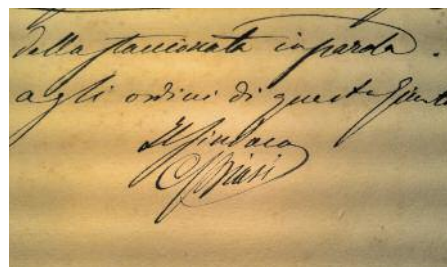 della staccionata in parola.
agli ordini di questa Giunta
Il Sindaco
Biasi